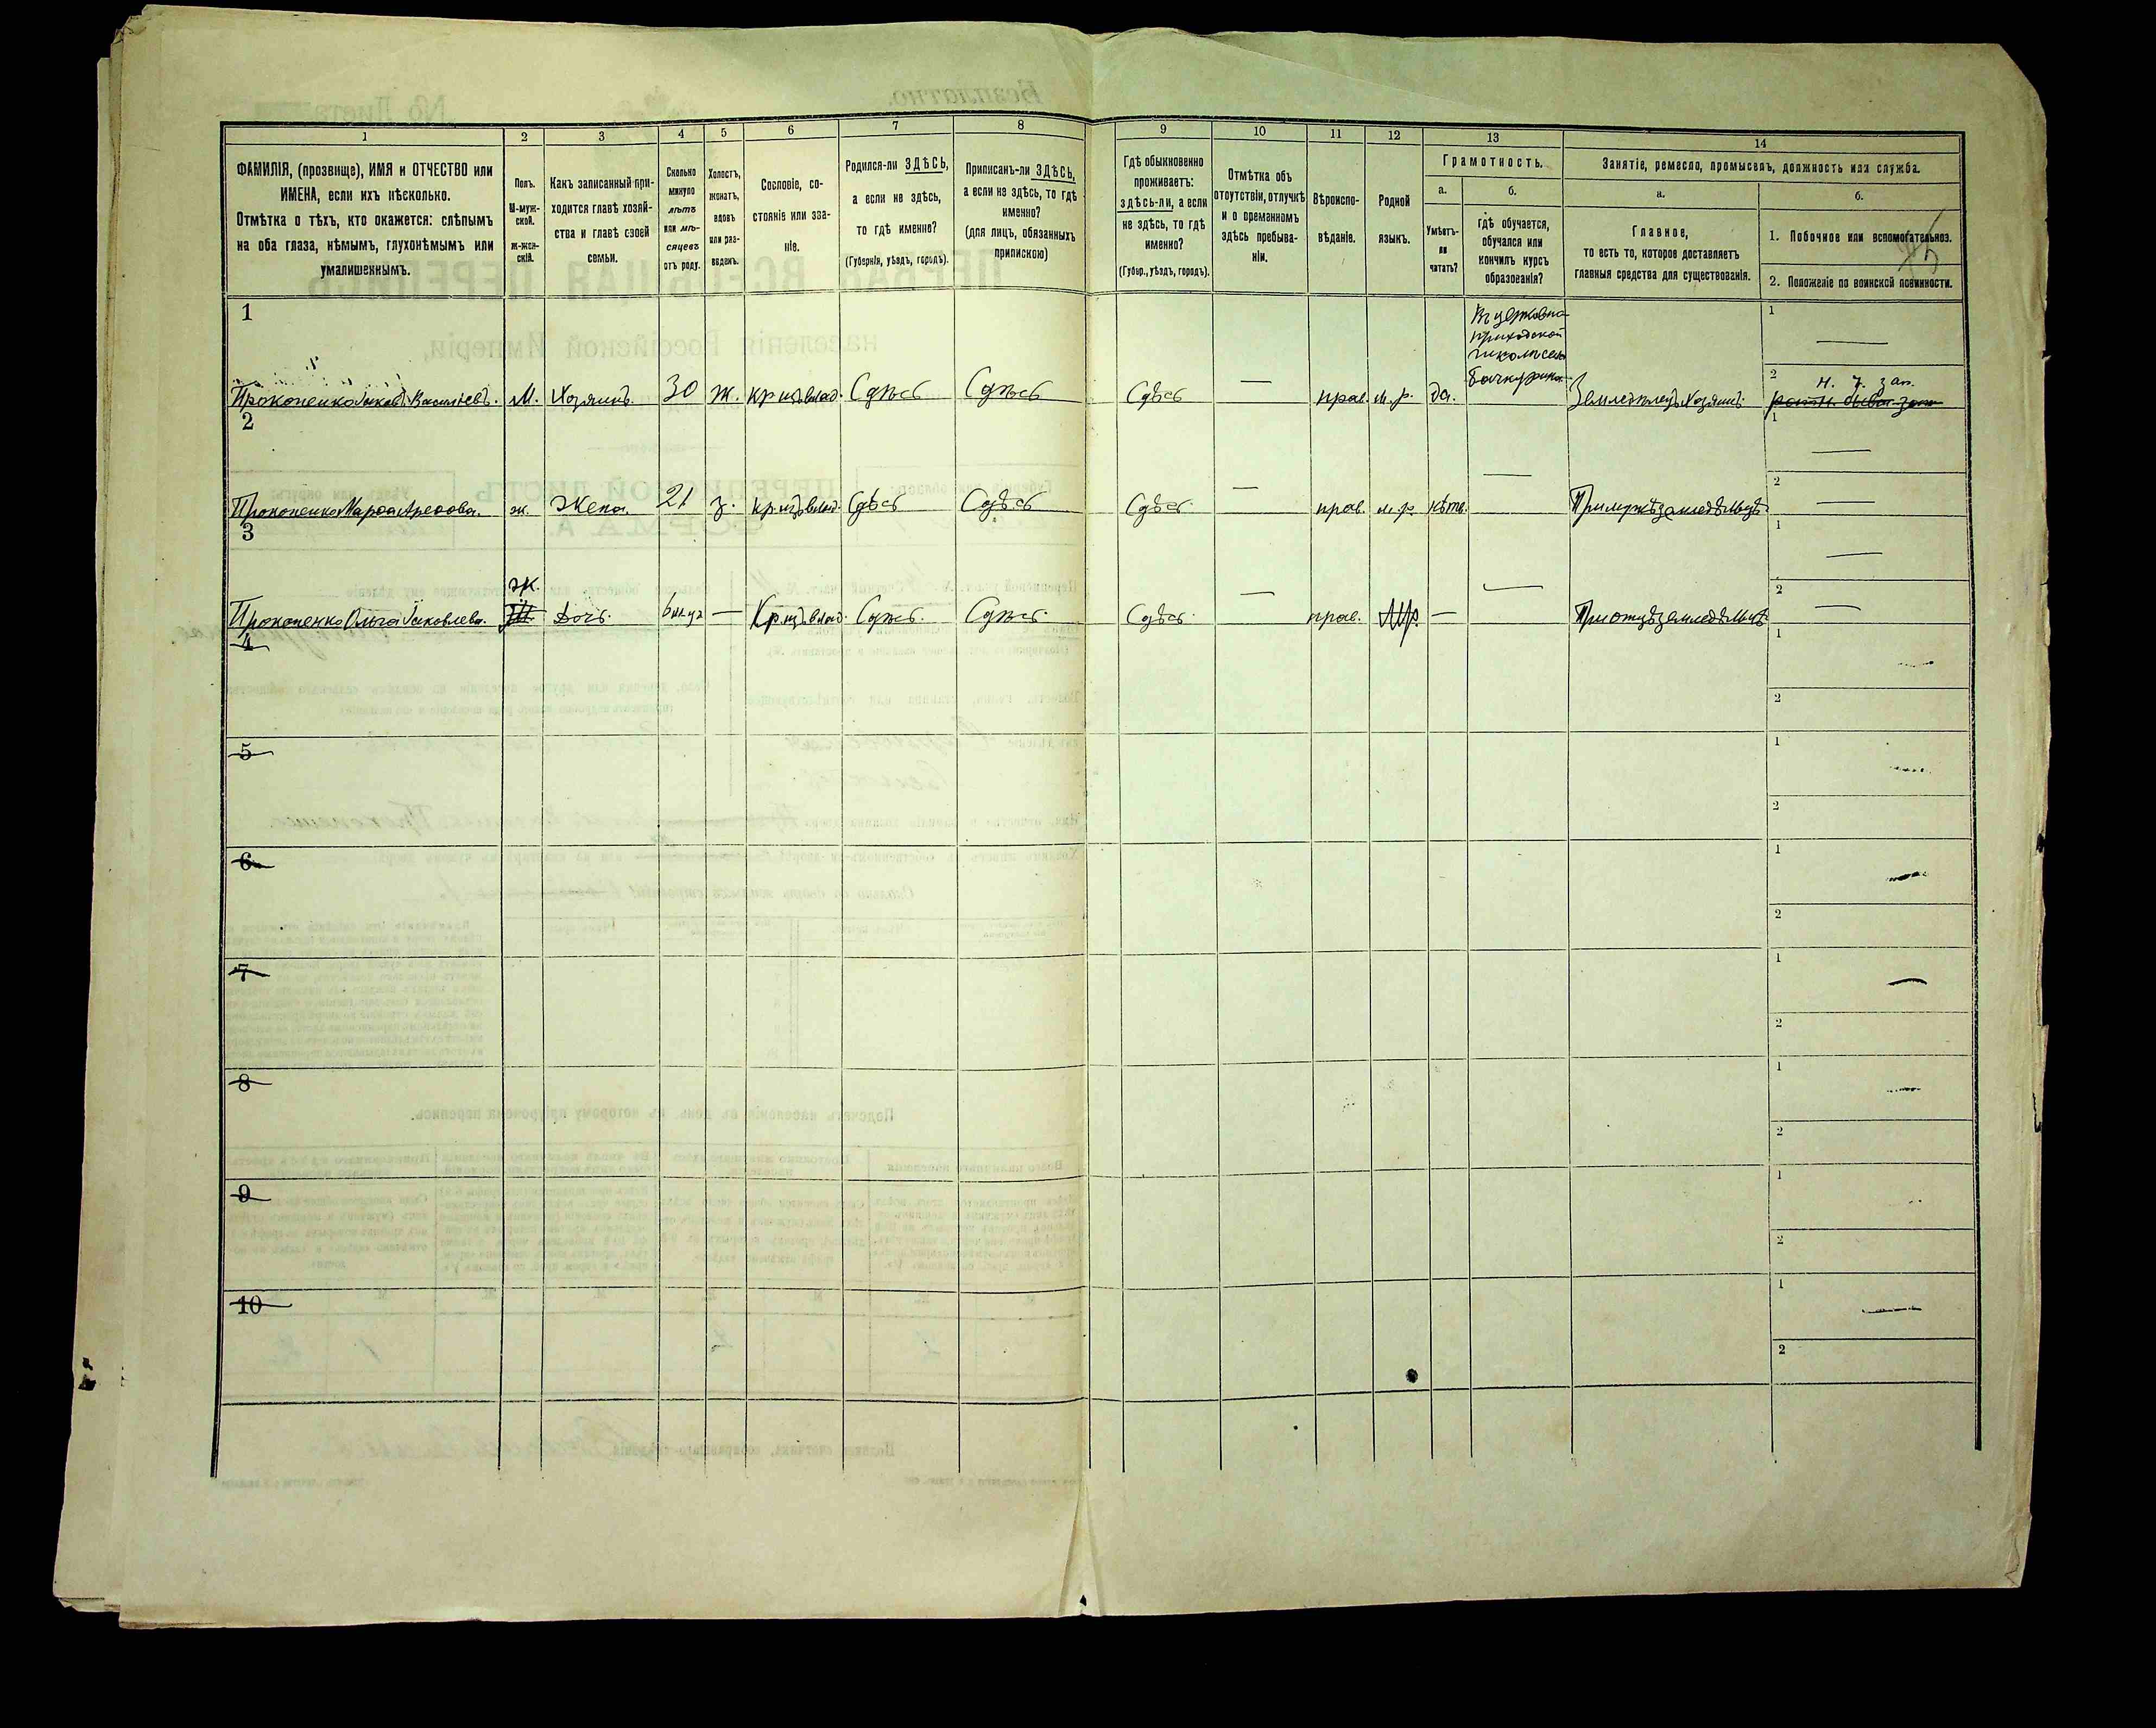 1
2
3
4
5
6
7
8
9
10
11
12
13
14
ФАМИЛІЯ, (прозвище), ИМЯ и ОТЧЕСТВО или
ИМЕНА, если ихъ нѣсколько.
Отмѣтка о тѣхъ, кто окажется: слѣпымъ
на оба глаза, нѣмымъ, глухонѣмымъ или
умалишеннымъ.
Полъ.
М-муж-
ской.
ж-жен-
скій.
Какъ записанный при-
ходится главѣ хозяй-
ства и главѣ своей
семьи.
Сколько
минуло
лѣтъ
или мѣ-
сяцевъ
отъ роду.
Холостъ,
женатъ,
вдовъ
или раз-
веденъ.
Сословіе, со-
стояніе или зва-
ніе.
Родился-ли ЗДѢСЬ,
а если не здѣсь,
то гдѣ именно?
(Губернія, уѣздъ, городъ).
Приписанъ-ли ЗДѢСЬ,
а если не здѣсь, то гдѣ
именно?
(для лицъ, обязанныхъ
припискою)
Гдѣ обыкновенно
проживаетъ:
здѣсь-ли, а если
не здѣсь, то гдѣ
именно?
(Губер., уѣздъ, городъ).
Отмѣтка объ
отсутствіи, отлучкѣ
и о временномъ
здѣсь пребыва-
ніи.
Вѣроиспо-
вѣданіе.
Родной
языкъ.
Грамотность.
а.
Умѣетъ-
ли
читать?
б.
гдѣ обучается,
обучался или
кончилъ курсъ
образованія?
Занятіе, ремесло, промыселъ, должность или служба.
а.
Главное,
то есть то, которое доставляетъ
главныя средства для существованія.
б.
1. Побочное или вспомогательное.
2. Положеніе по воинской повинности.
1
Прокопенко Іаковъ Васильевъ. М. Хозяинъ. 30 Ж. кр изъ влад. Сдѣсь Сдѣсь Сдѣсь — прав. м.р. да.
Въ церковно
приходской
школѣ села
Земледѣлецъ Хозяинъ.
1 —
2 н. ч. зап.
2
Прокопенко Марѳа Ареѳова. ж. Жена. 21 з. кр. изъ влад. Сдѣсь Сдѣсь Сдѣсь. — прав. м.р. нѣтъ. — При мужѣ земледѣльцѣ
1 —
2 —
3
Прокопенко Ольга Іаковлева. Ж. Дочь. — Кр. изъ влад. Сдѣсь. Сдѣсь. Сдѣсь. — прав. М.р. — — При отцѣ земледѣльцѣ
1 —
2 —
4
1
2
5
1
2
6
1
2
7
1
2
8
1
2
9
1
2
10
1
2